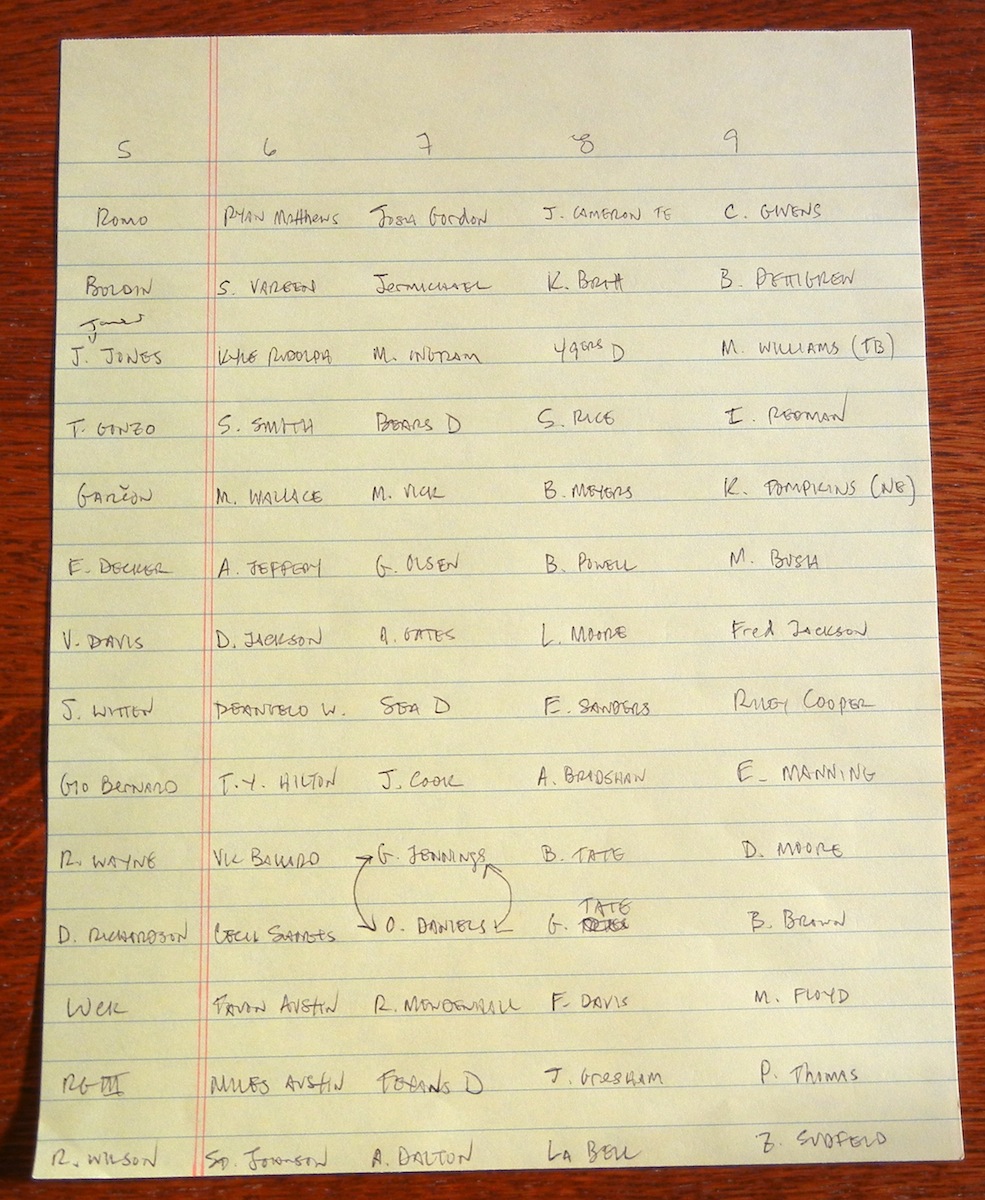 5 6 7 8 9
Romo RYAN MATTHEWS JOSH GORDON J. CAMERON TE C. GIVENS
BOLDIN S. VAREEN JERMICHAEL K. BRITT B. PETTIGREW
James
J. JONES KYLE RUDOLPH M. INGRAM 49ERS D M. WILLIAMS (TB)
T. GONZO S. SMITH BEARS D S. RICE I. REDMAN
GARÇON M. WALLACE M. VICK B. MEYERS K. TOMPKINS (NE)
E. DECKER A. JEFFERY G. OLSEN B. POWELL M. BUSH
V. DAVIS D. JACKSON A. GATES L. MOORE Fred JACKSON
J. WITTEN DEANGELO W. SEA D E. SANDERS RILEY COOPER
GIO BERNARD T.Y. HILTON J. COOK A. BRADSHAW E. MANNING
R. WAYNE VIC BALLARD G. JENNINGS B. TATE D. MOORE
TATE
D. RICHARDSON CECIL SHORTS O. DANIELS G. B. BROWN
LUCK TAVON AUSTIN R. MENDENHALL F. DAVIS M. FLOYD
RG III MILES AUSTIN TEXANS D J. GRESHAM P. THOMAS
R. WILSON SD. JOHNSON A. DALTON LA BELL Z. SUDFELD